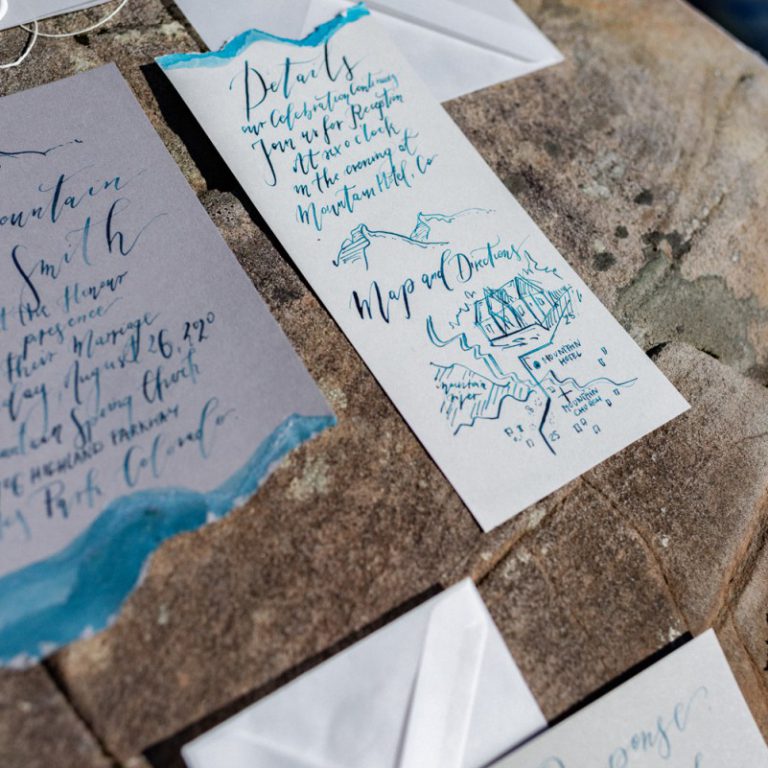 ountain
Smith
the Honour
presence
their Marriage
day, August 26,
Spring Church
HIGHLAND PARKWAY
Park Colorado
Details
our Celebration Continuing
Join us for Reception
At six o'clock
in the evening at
Mountain Hotel, Co
Map and Directions
MOUNTAIN
HOTEL
mountain
river
MOUNTAIN
CHURCH
25